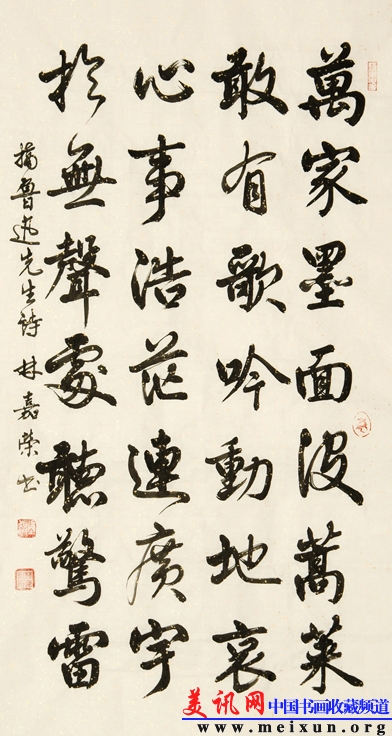 萬家墨面没蒿萊
敢有歌吟動地哀
心事浩茫連廣宇
於無聲處聽驚雷
摘魯迅先生詩 林嘉榮书
美讯网 中国书画收藏频道
www.meixun.org